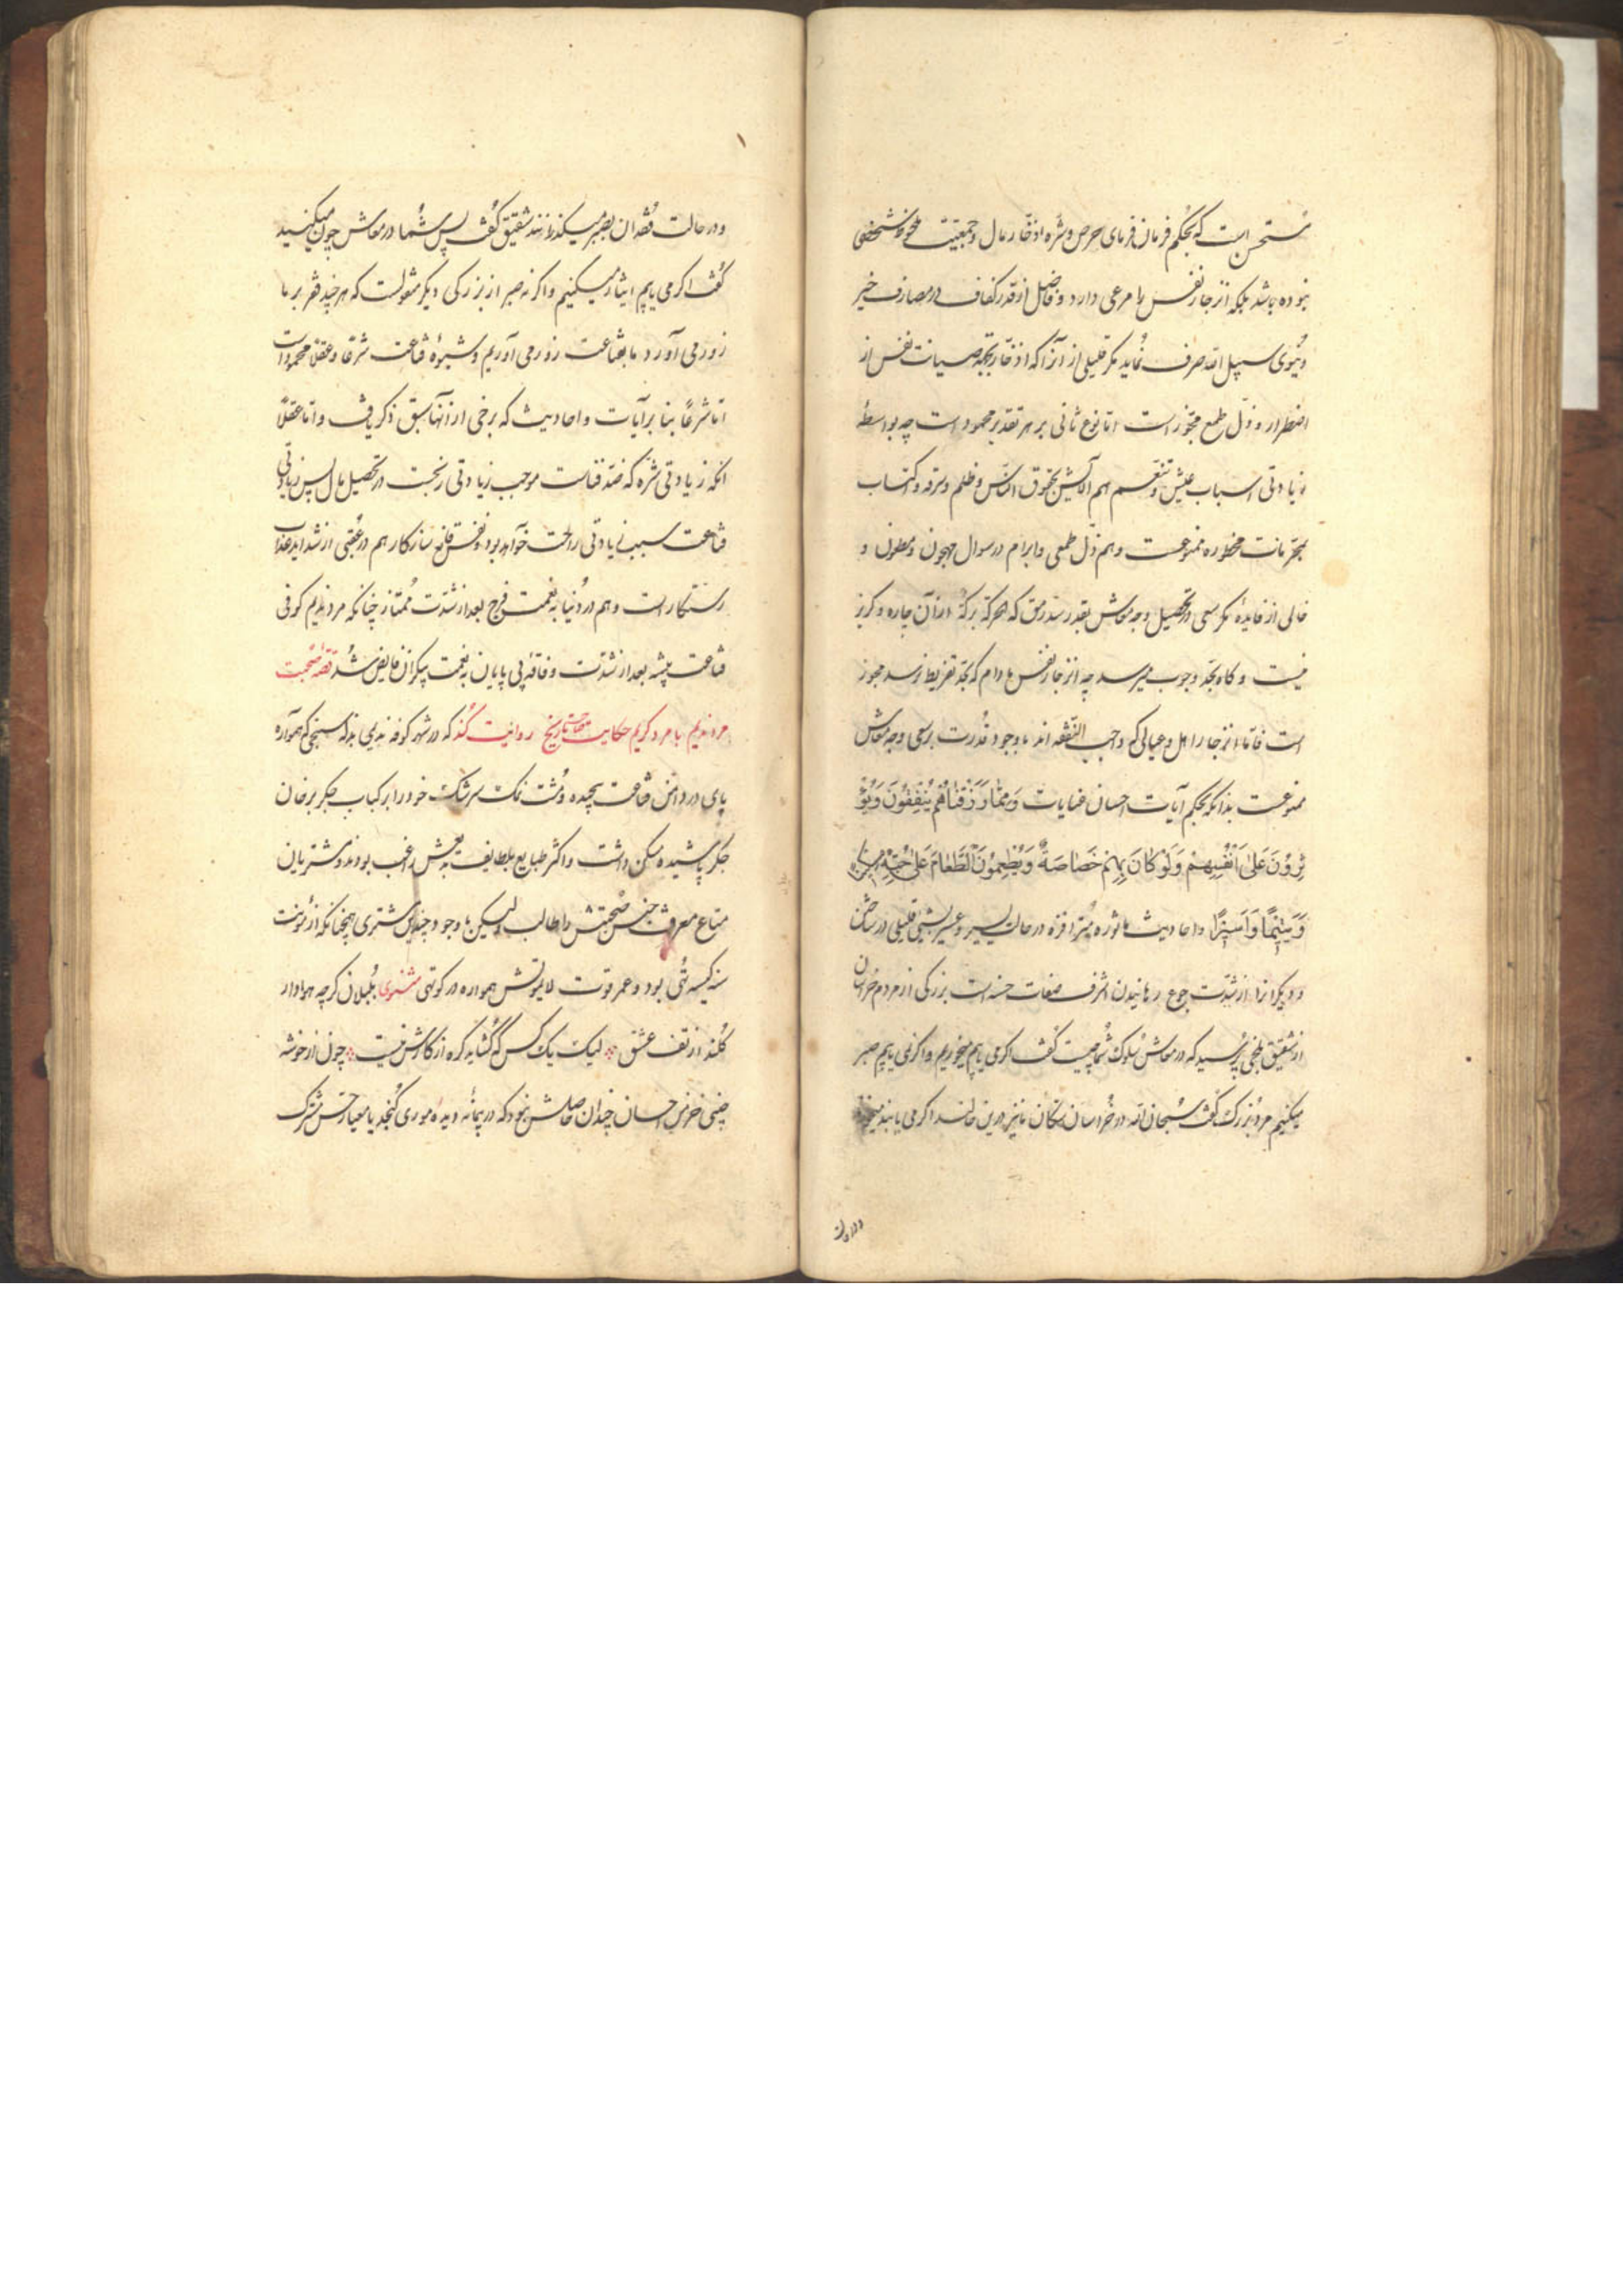 مستحسن است که بحکم فرمان فرمای حرص و شره ادخار مال و جمعیت ملحوظ شخصی
نبوده باشد بلکه انزجار نفس را مرعی دارد و فاضل از قدر کفاف در مصارف خیر
دنیوی سبیل الله صرف نماید مگر قلیلی از آنرا که ادخار بجهة صیانت نفس از
اضطرار و ذل طمع مجوز است اما نوع ثانی بر هر تقدیر محمود است چه بواسطهٔ
زیادتی اسباب عیش و تنعم هم آلایش بحقوق الناس و ظلم و سرقه و اکتساب
بمحرمات محظوره ممنوعست و هم ذل طمعی و ابرام در سوال مهجون و مطعون و
خالی از فایدهٔ مگر سعی در تحصیل وجه معاش بقدر سد رمق که الحرکة برکة از آن چاره و گریز
نیست و گاه بحد وجوب میرسد چه انزجار نفس مادام که بحد تفریط نرسد مجوز
است فاما انزجار اهل و عیالی که واجب النفقه اند باوجود قدرت بر سعی وجه معاش
ممنوعست بدانکه بحکم آیات احسان غنایات وَمِمَّا رَزَقْنَاهُمْ يُنْفِقُونَ وَيُؤْ
ثِرُونَ عَلَىٰ أَنْفُسِهِمْ وَلَوْ كَانَ بِهِمْ خَصَاصَةٌ وَيُطْعِمُونَ الطَّعَامَ عَلَىٰ حُبِّهِ مِسْكِينًا
وَيَتِيمًا وَأَسِيرًا و احادیث ماثوره متوافره در حالت یسیر و عسیر بشیئی قلیلی در ساختن
و دیگرانرا از شدت جوع رهانیدن اشرف صفات حسنه است بزرگی از مردم خراسان
از شقیق بلخی پرسید که در معاش سلوک شما چیست گفت اگر می یابیم میخوریم و اگر نمی یابیم صبر
میکنیم مرد بزرگ گفت سبحان الله در خراسان سگان نیز درین حالند اگر می یابند میخورند
و در حالت
و در حالت فقدان بصبر میگذرانند شقیق گفت پس شما در معاش چون میکنید
گفت اگر می یابیم ایثار میکنیم و اگر نه صبر از بزرگی دیگر منقولست که هر چند فقر بر ما
زور می آورد ما بقناعت زور می آوریم و شیوهٔ قناعت شرعا و عقلا محمود است
اما شرعاً بنا بر آیات و احادیث که برخی از آنها سبق ذکر یافت و اما عقلاً
آنکه زیادتی شره که ضد قناعت موجب زیادتی رنجست در تحصیل مال پس زیادتی
قناعت سبب زیادتی راحت خواهد بود و نفس قانع سازگار هم در عقبی از شداید عذاب
رستگار است و هم در دنیا به نعمت فرج بعد از شدت ممتاز چنانکه مرد ندیم کوفی
قناعت پیشه بعد از شدت و فاقهٔ بی پایان به نعمت بیکران فایض شد قصه صحبت
مرد ندیم با مرد کریم حکایت سنج تاریخ روایت کند که در شهر کوفه ندیمی بذله سنجی که همواره
پای در دامن قناعت پیچیده و مشت نمک سرشک خود را بر کباب جگر بر خان
جگر پاشیده مسکن داشت و اکثر طبایع بلطایف بذله‌اش راغب بودند و مشتریان
متاع معرفت جنس صحبتش را طالب و لیکن باوجود چندین مشتری همچنانکه از مؤنت
سنه کیسه تهی بود و عمر قوت لایموتش همواره در کوتهی مثنوی بلبلان گرچه هوادار
کلند از تف عشق لیک یک کس که گشاید گره از کارش نیست چون از خوشه
چینی خرمن احسان چندان حاصلش نبود که در پیمانه دیدهٔ موری گنجد یا معیار حس مشترک